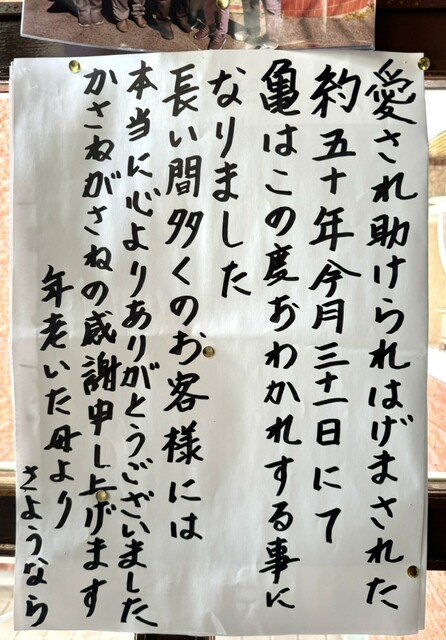 愛され助けられはげまされた
約五十年今月三十一日にて
亀はこの度おわかれする事に
なりました
長い間多くのお客様には
本当に心よりありがとうございました
かさねがさねの感謝申し上げます
年老いた母より
さようなら